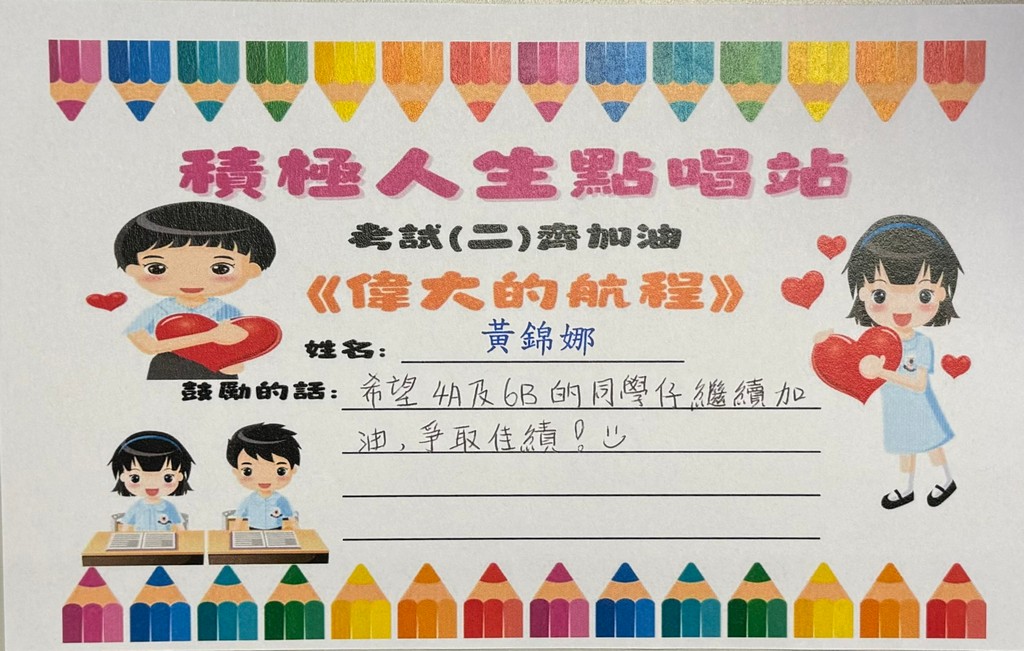 積極人生點唱站
考試(二)齊加油
《偉大的航程》
姓名: 黃錦娜
鼓勵的話: 希望4A及6B的同學仔繼續加
油,爭取佳績!